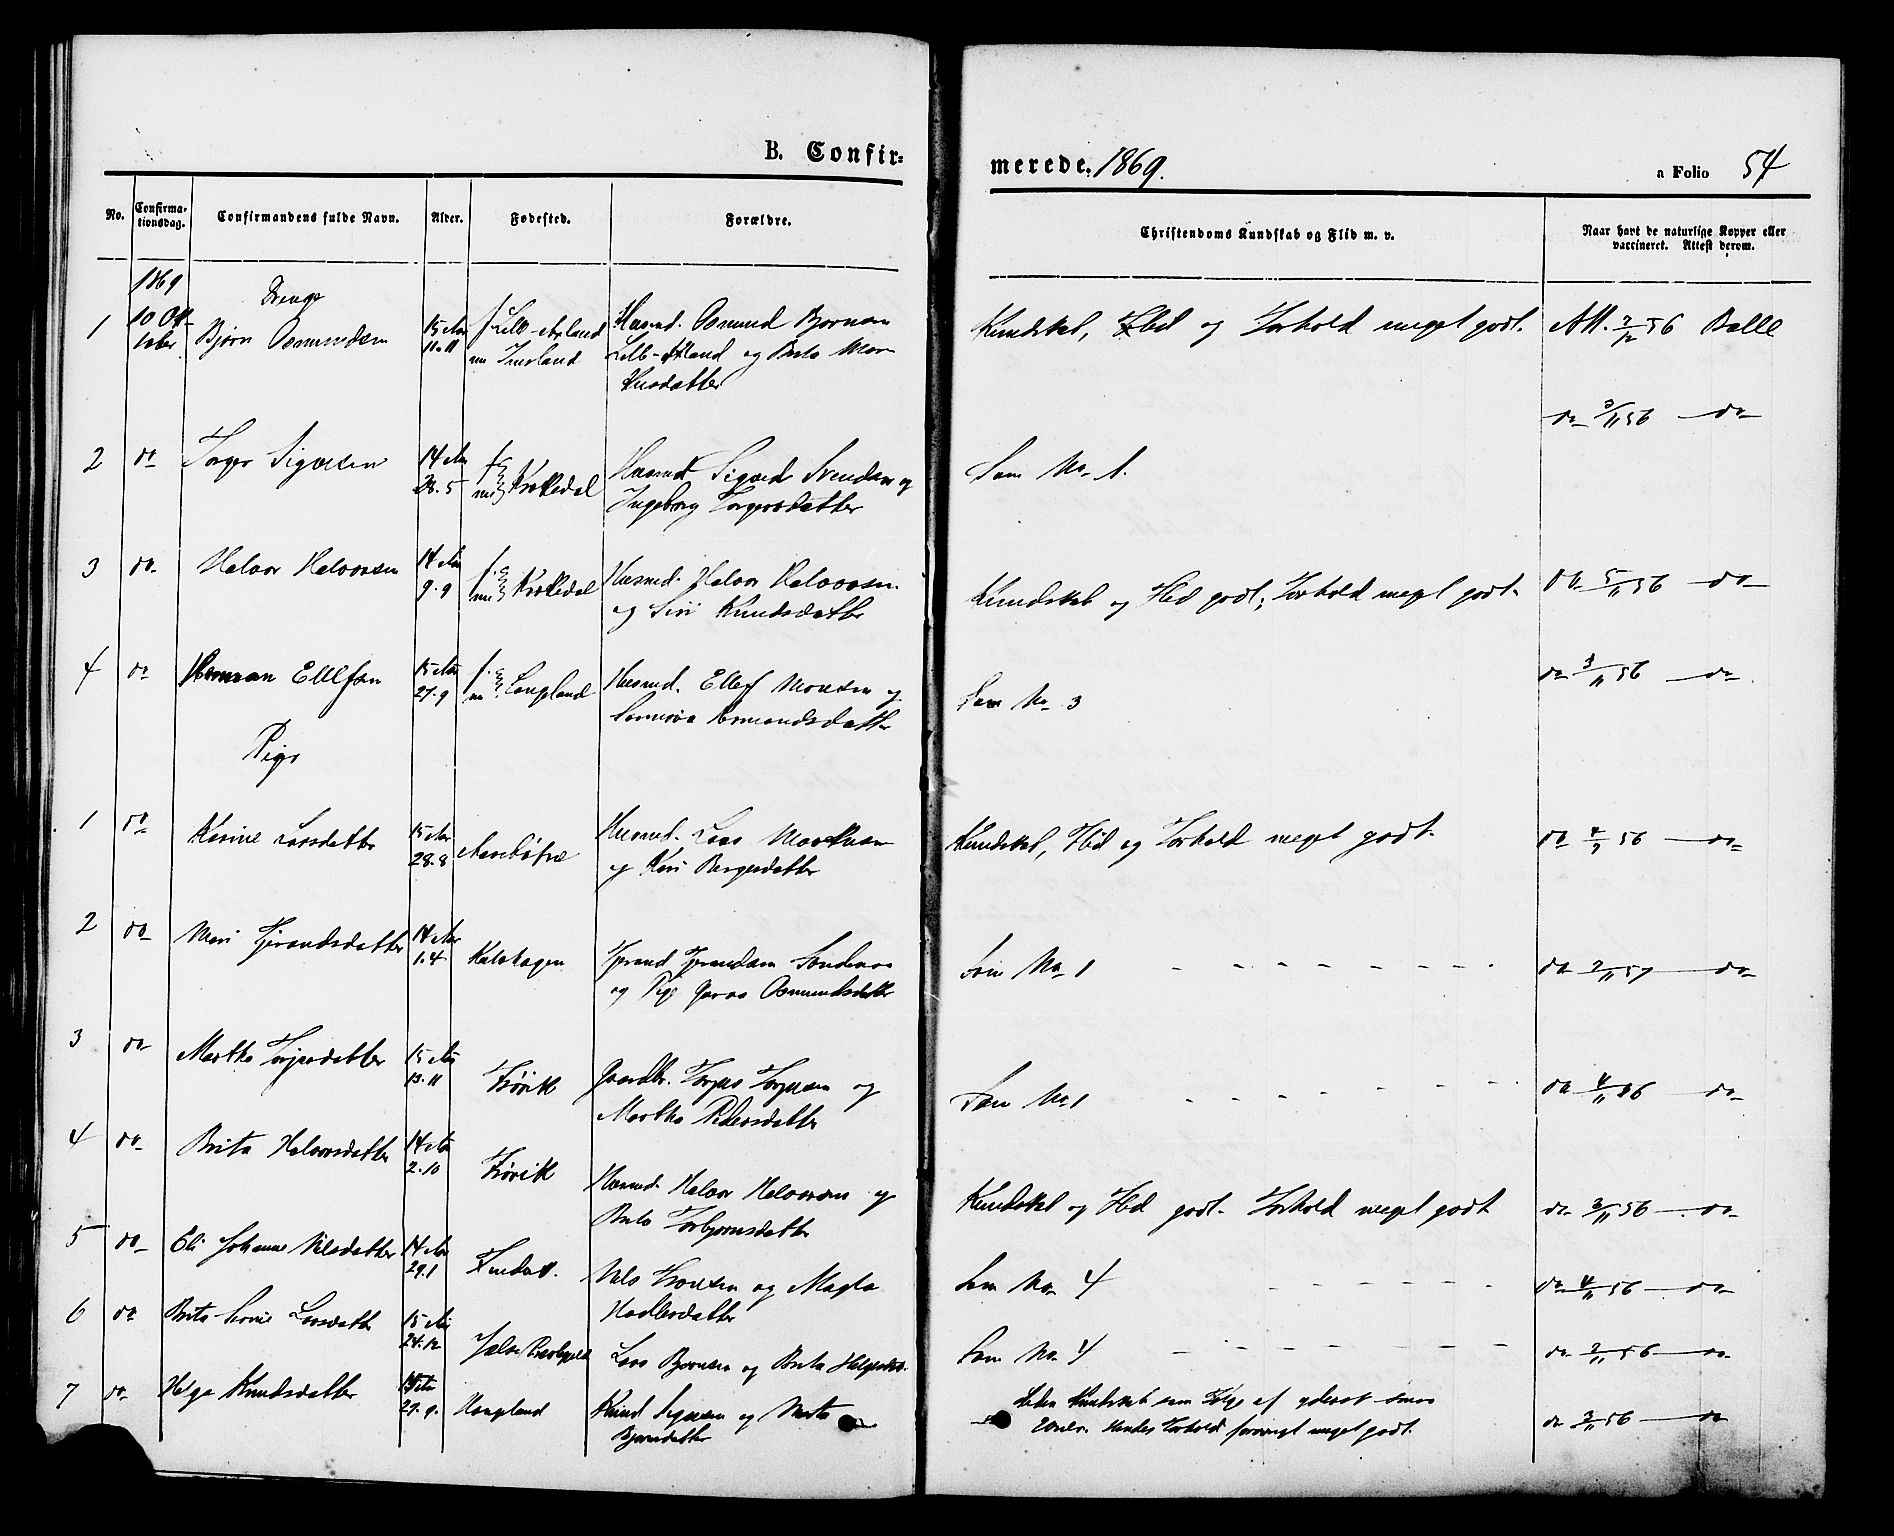 B. Confir=
merede. 1869.
a Folio 54
No.
Confirma-
tionsdag.
Confirmandens fulde Navn.
Alder.
Fødested.
Forældre.
Christendoms Kundskab og Flid m. v.
Naar havt de naturlige Kopper eller
vaccineret. Attest derom.
1869
Drenge
1 10 Okt
tober Bjørn Osmundsen 15 Aar
11. 11
Husmd. Osmund
og Brita
Kundskab, Flid og Forhold meget godt. Att. 2/12 56 Balle
2 do Torger Sigvesen 14 Aar
28. 5 Krokedal Husmd Sigved Svendsen og
Ingeborg Torgersdatter
Som No 1. do 3/11 56 do
3 do Halvor Halvorsen 14 Aar
9. 9 Krokedal Husmd. Halvor Halvorsen
og Siri Knudsdatter
Kundskab og Flid godt, Forhold meget godt. do 5/11 56 do
4 do Herman Ellefsen 15 Aar
27. 9 Husmd. Ellef Monsen og
Osmundsdatter
Som No 3 do 3/11 56 do
Piger
1 do Karine Larsdatter 15 Aar
28. 8 Husmd. Lars
og Kari Bergesdatter
Kundskab, Flid og Forhold meget godt. do 56 do
2 do 14 Aar
1. 4 Kalvhagen
og Pige Osmundsdatter
Som No 1 do 2/11 57 do
3 do Martha Torjersdatter 15 Aar
13. 11 Gaardbr. og
Martha Pedersdatter
Som No 1 do 4/11 56 do
4 do Brita Halvorsdatter 14 Aar
2. 10 Husmd. Halvor Halvorsen og
Brita Torbjørnsdatter
Kundskab og Flid godt. Forhold meget godt do 3/11 56 do
5 do Eli Johanne Nilsdatter 14 Aar
29. 1 Nils og
Som No 4 do 4/11 56 do
6 do Brita Larsdatter 15 Aar
24. 12 Lars Bjørnsen og Brita
Som No 4 do 2/11 56 do
7 do Helga Knudsdatter
27. 9. Haugland Knud og
Bjørnsdatter
Liden Kundskab som Følge af yderst smaa
Evner. Hendes Forhold forøvrigt meget godt. do 3/11 56 do